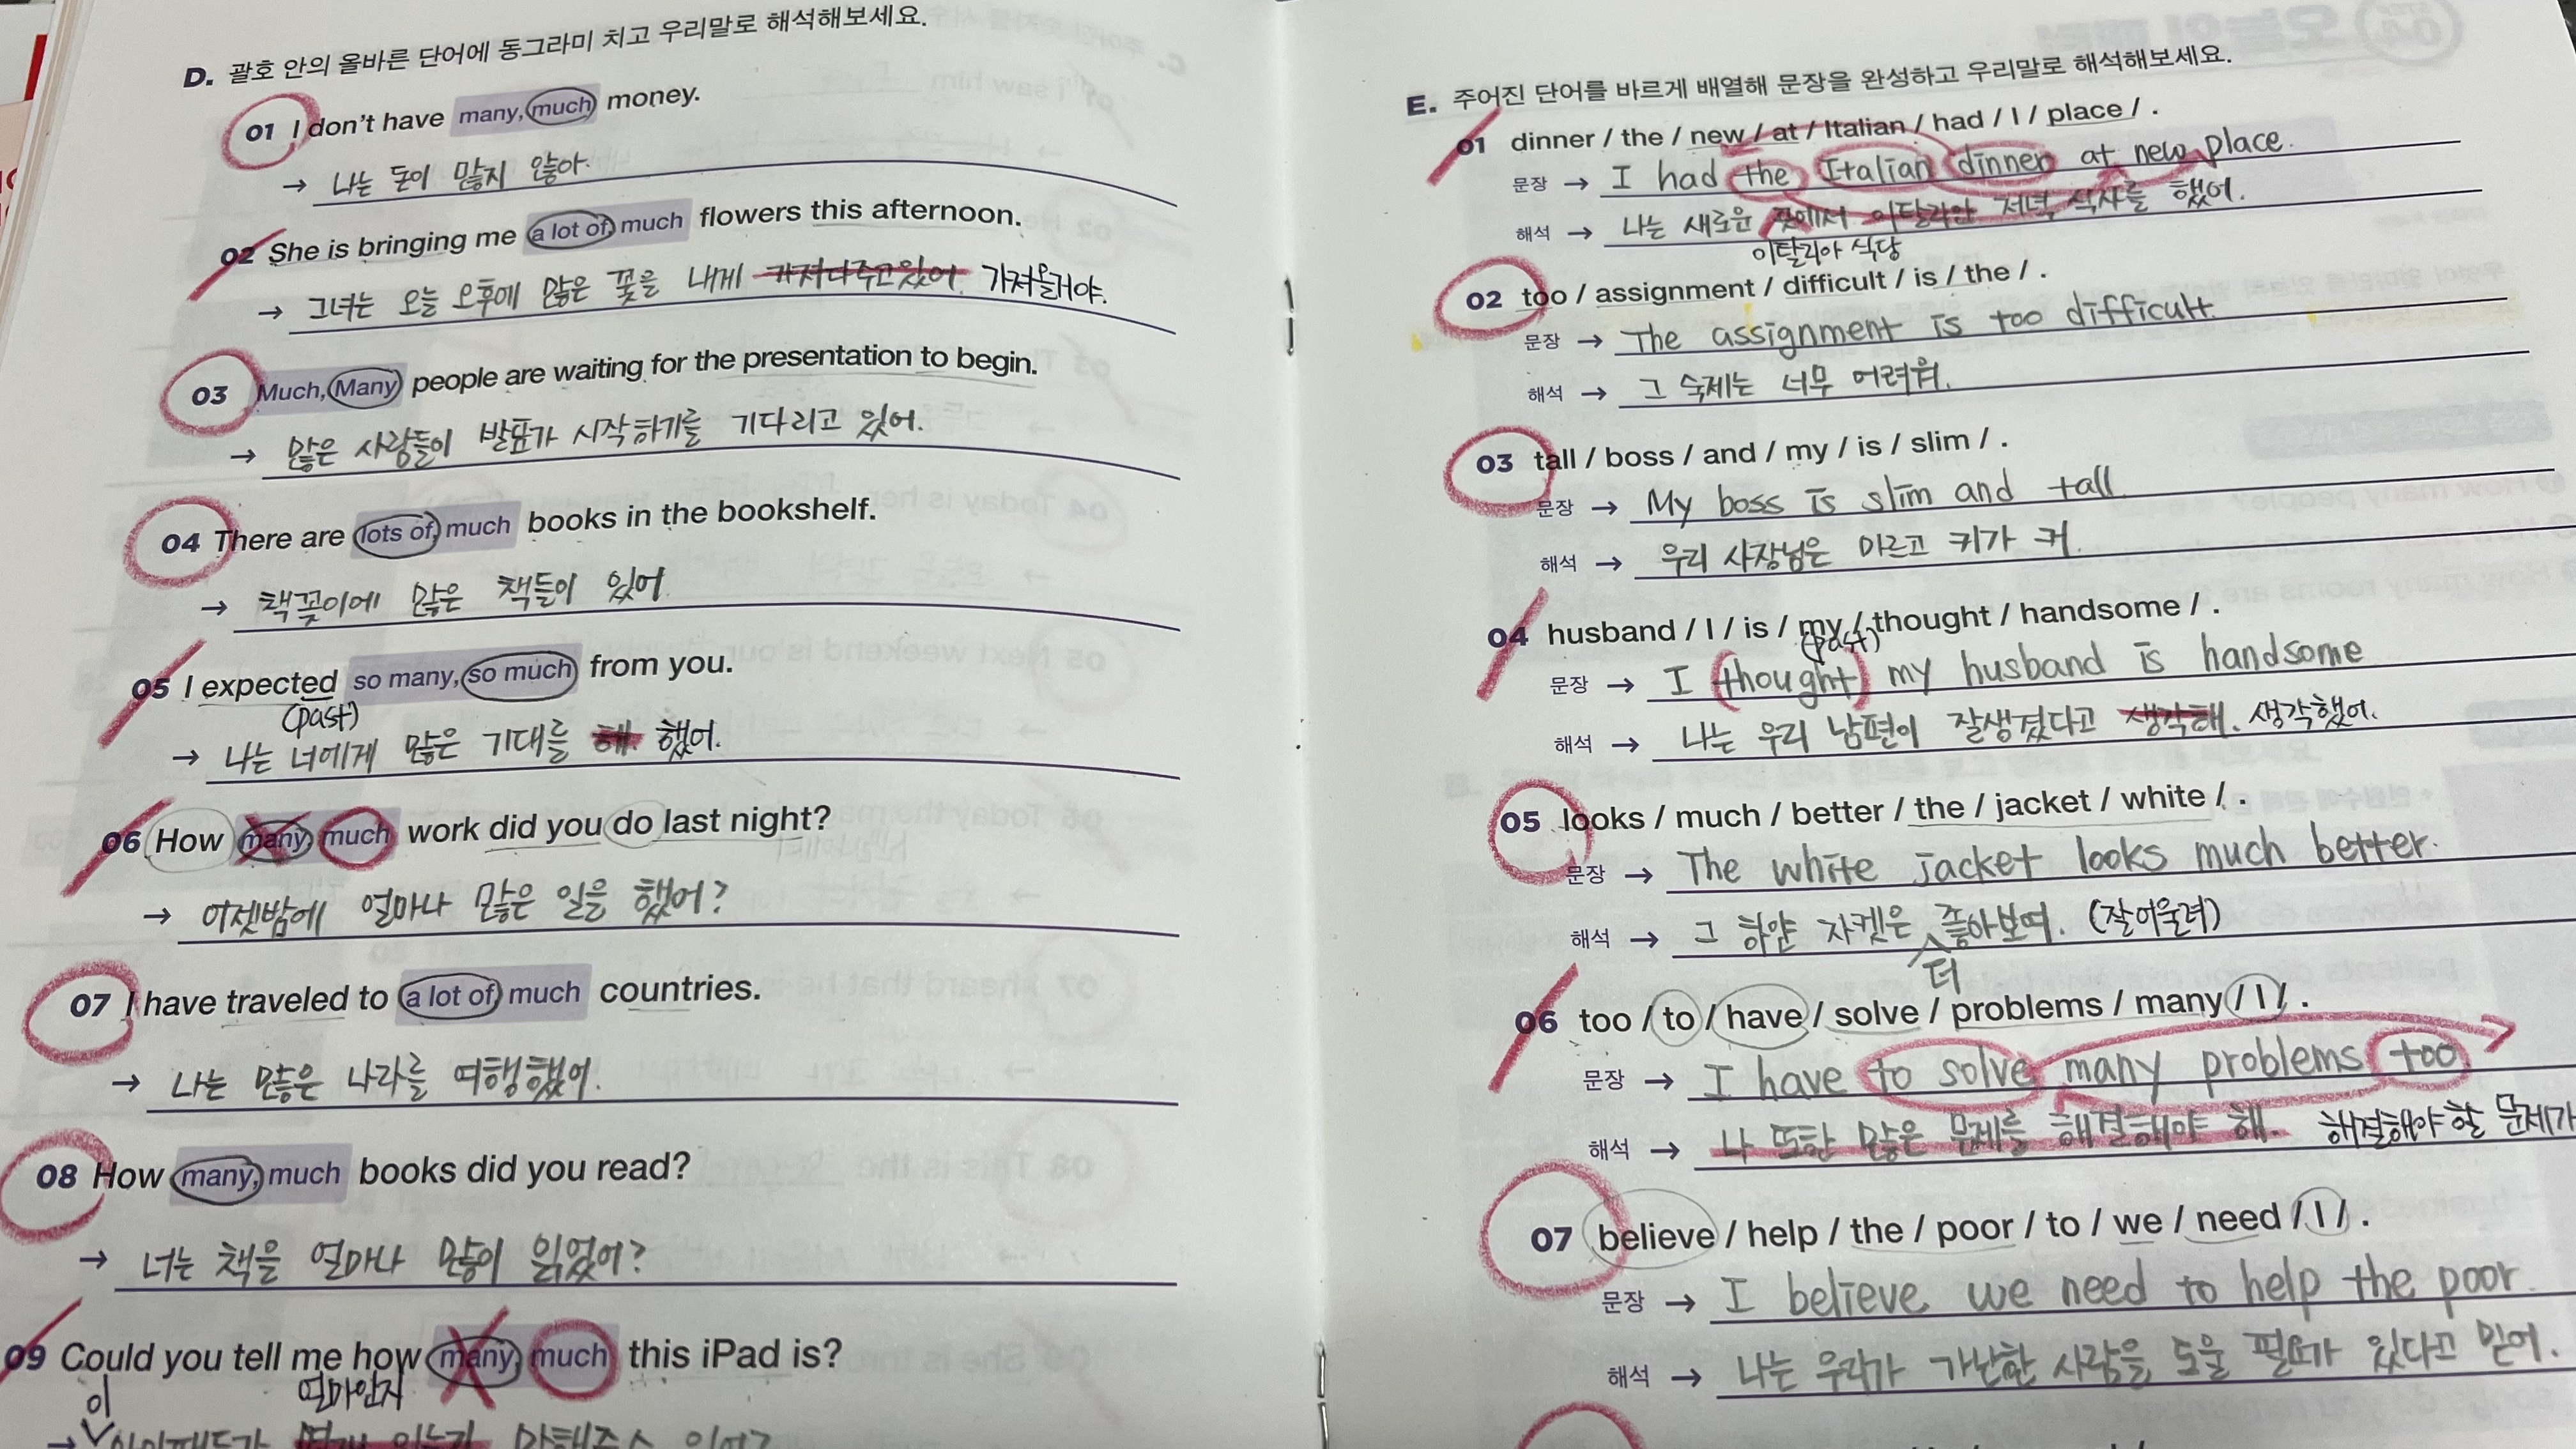 D. 괄호 안의 올바른 단어에 동그라미 치고 우리말로 해석해보세요.
01 I don't have many, much money.
→ 나는 돈이 많지 않아.
02 She is bringing me a lot of, much flowers this afternoon.
→ 그녀는 오늘 오후에 많은 꽃을 내게 가져다주고있어. 가져올거야.
03 Much, Many people are waiting for the presentation to begin.
→ 많은 사람들이 발표가 시작하기를 기다리고 있어.
04 There are lots of, much books in the bookshelf.
→ 책꽂이에 많은 책들이 있어
05 I expected so many, so much from you.
(past)
→ 나는 너에게 많은 기대를 해. 했어.
06 How many, much work did you do last night?
→ 어젯밤에 얼마나 많은 일을 했어?
07 I have traveled to a lot of, much countries.
→ 나는 많은 나라를 여행했어.
08 How many, much books did you read?
→ 너는 책을 얼마나 많이 읽었어?
09 Could you tell me how many, much this iPad is?
이 얼마인지
E. 주어진 단어를 바르게 배열해 문장을 완성하고 우리말로 해석해보세요.
01 dinner / the / new / at / Italian / had / I / place / .
문장 → I had the Italian dinner at new place.
해석 → 나는 새로운 곳에서 이탈리안 저녁 식사를 했어.
이탈리아 식당
02 too / assignment / difficult / is / the / .
문장 → The assignment is too difficult.
해석 → 그 숙제는 너무 어려워.
03 tall / boss / and / my / is / slim / .
문장 → My boss is slim and tall
해석 → 우리 사장님은 마르고 키가 커.
04 husband / I / is / my / thought / handsome / .
(past)
문장 → I thought my husband is handsome
해석 → 나는 우리 남편이 잘생겼다고 생각해. 생각했어.
05 looks / much / better / the / jacket / white / .
문장 → The white jacket looks much better.
해석 → 그 하얀 자켓은 좋아보여. (잘어울려)
더
06 too / to / have / solve / problems / many / I / .
문장 → I have to solve many problems too
해석 → 나 또한 많은 문제를 해결해야 해. 해결해야 할 문제가
07 believe / help / the / poor / to / we / need / I / .
문장 → I believe we need to help the poor.
해석 → 나는 우리가 가난한 사람을 도울 필요가 있다고 믿어.